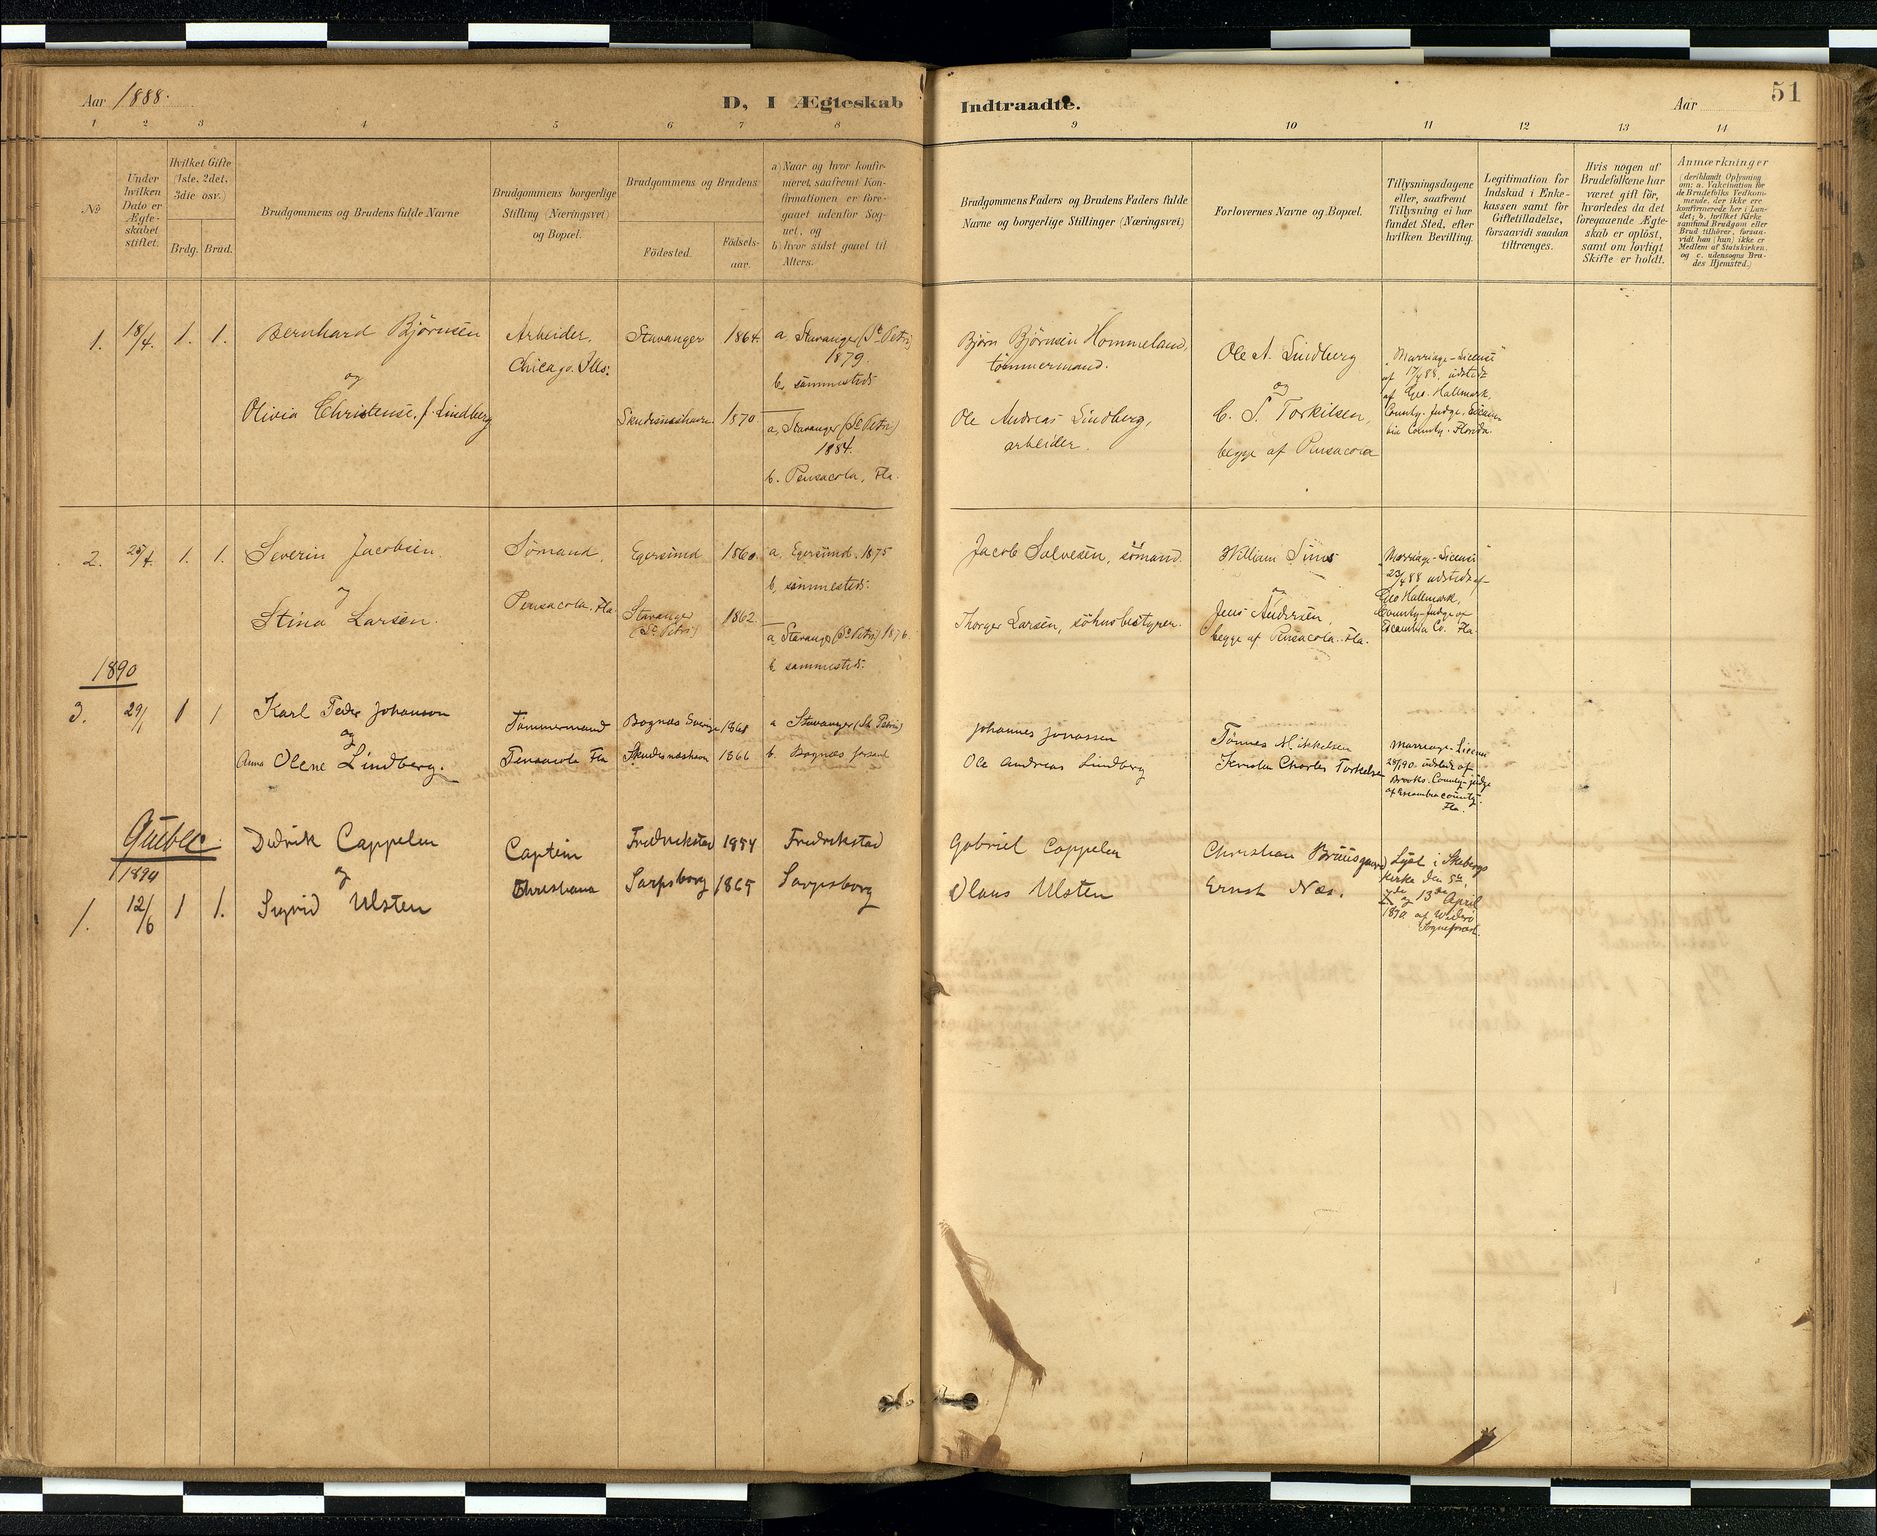 Aar 1888.
D, I Ægteskab
Indtraadte.
Aar
51
1 2 3 4 5 6 7 8 9 10 11 12 13 14
No
Under hvilken Dato er Ægteskabet stiftet.
Hvilket Gifte (1ste, 2det, 3die osv.)
Brdg. Brud.
Brudgommens og Brudens fulde Navne
Brudgommens borgerlige Stilling (Næringsvei) og Bopæl.
Brudgommens og Brudens
Födested.
Födsels-aar.
a) Naar og hvor konfirmeret, saafremt Konfirmationen er foregaaet udenfor Sognet, og
b) hvor sidst gaaet til Alters.
Brudgommens Faders og Brudens Faders fulde Navne og borgerlige Stillinger (Næringsvei)
Forlovernes Navne og Bopæl.
Tillysningsdagene eller, saafremt Tillysning ei har fundet Sted, efter hvilken Bevilling.
Legitimation for Indskud i Enkekassen samt for Giftetilladelse, forsaavidt saadan tiltrænges.
Hvis nogen af Brudefolkene har været gift för, hvorledes da det foregaaende Ægteskab er oplöst, samt om lovligt Skifte er holdt.
Anmærkninger
(deriblandt Oplysning om: a. Vakcination for de Brudefolks Vedkommende, der ikke ere konfirmerede her i Landet; b. hvilket Kirkesamfund Brudgom eller Brud tilhörer, forsaavidt han (hun) ikke er Medlem af Statskirken, og c. udensogns Brudes Hjemsted.)
1. 18/4. 1. 1. Bernhard Bjørnsen
og
Olivia Christense, f. Lindberg
Arbeider,
Chicago. Ills:
Stavanger 1864.
Skudesneshavn 1870
a Stavanger (St. Petri)
1879.
b, sammesteds
a, Stavanger (St. Petri)
1884.
b. Pensacola, Fla.
Bjørn Bjørnsen Hommeland,
tømmermand.
Ole Andreas Lindberg,
arbeider.
Ole A. Lindberg
og
C. T. Torkilsen,
begge af Pensacola
"Marriage-License"
af 17/4 88. udstedt
af Geo. Hallmark,
County-Judge. Escam-
bia County. Florida.
2. 25/4. 1. 1. Severin Jacobsen.
og
Stina Larsen.
Sømand,
Pensacola, Fla
Egersund 1860.
Stavanger 1862
(St. Petri)
a, Egersund. 1875
b, sammesteds:
a Stavanger (St. Petri) 1876.
b sammesteds:
Jacob Salvesen, sømand.
Thorger Larsen, søhusbestyrer.
William Sims
og
Jens Andersen,
begge af Pensacola. Fla.
"Marriage-License"
23/4 88 udstedt af
Geo Hallmark,
County-Judge or
Escambia Co. Fla.
1890
3. 29/1 1 1 Karl Peder Johanson
og
Anna Olene Lindberg.
Tømmermand
Pensacola Fla
Bognæs Sverige 1868
Skudesneshavn 1866
a Stavanger (St. Petri)
b. Bognæs forsaml
Johannes Jonassen
Ole Andreas Lindberg
Tønnes Mikkelsen
Kristen Charles Torkelsen
Marriage-License
28/1 90 udstedt af
Brooks. County-judge
af Escambia county.
Fla.
Quebec.
1890
1. 12/6 1 1. Didrik Cappelen
og
Sigrid Ulsten
Captein
Christiana
Fredrikstad 1854
Sarpsborg 1865
Fredrikstad
Sarpsborg
Gabriel Cappelen
Olaus Ulsten
Christian Bruusgaard
Ernst Næs.
Lyst i Skeberg
Kirke den 5te,
7de og 13de April
1890 af
Sognepræst.